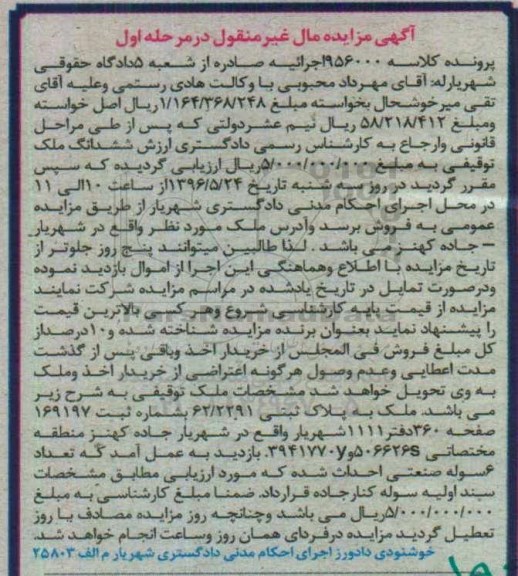 آگهی مزایده مال غیرمنقول در مرحله اول
پرونده کلاسه ۹۵۶۰۰۰اجرائیه صادره از شعبه ۵دادگاه حقوقی
شهریارله: آقای مهرداد محبوبی با وکالت هادی رستمی وعلیه آقای
تقی میرخوشحال بخواسته مبلغ ۱/۱۶۴/۳۶۸/۲۴۸ریال اصل خواسته
ومبلغ ۵۸/۲۱۸/۴۱۲ ریال نیم عشردولتی که پس از طی مراحل
قانونی وارجاع به کارشناس رسمی دادگستری ارزش ششدانگ ملک
توقیفی به مبلغ ۵/۰۰۰/۰۰۰/۰۰۰ریال ارزیابی گردیده که سپس
مقرر گردید در روز سه شنبه تاریخ ۱۳۹۶/۵/۲۴از ساعت ۱۰الی ۱۱
در محل اجرای احکام مدنی دادگستری شهریار از طریق مزایده
عمومی به فروش برسد وآدرس ملک مورد نظر واقع در شهریار
– جاده کهنز می باشد . لذا طالبین میتوانند پنج روز جلوتر از
تاریخ مزایده با اطلاع وهماهنگی این اجرا از اموال بازدید نموده
ودرصورت تمایل در تاریخ یادشده در مراسم مزایده شرکت نمایند
مزایده از قیمت پایه کارشناسی شروع وهر کسی بالاترین قیمت
را پیشنهاد نماید بعنوان برنده مزایده شناخته شده و۱۰درصداز
کل مبلغ فروش فی المجلس از خریدار اخذ وباقی پس از گذشت
مدت اعطایی وعدم وصول هرگونه اعتراضی از خریدار اخذ وملک
به وی تحویل خواهد شد مشخصات ملک توقیفی به شرح زیر
می باشد. ملک به پلاک ثبتی ۶۲/۲۲۹۱ بشماره ثبت ۱۶۹۱۹۷
صفحه ۳۶۰دفتر۱۱۱۱شهریار واقع در شهریار جاده کهنز منطقه
مختصاتی ۵۰۶۶۲۶sو۳۹۴۱۷۷۰y. بازدید به عمل آمد که تعداد
۶سوله صنعتی احداث شده که مورد ارزیابی مطابق مشخصات
سند اولیه سوله کنارجاده قرارداد. ضمنا مبلغ کارشناسی به مبلغ
۵/۰۰۰/۰۰۰/۰۰۰ریال می باشد وچنانچه روز مزایده مصادف با روز
تعطیل گردید مزایده درفردای همان روز وساعت انجام خواهد شد.
خوشنودی دادورز اجرای احکام مدنی دادگستری شهریار م الف ۲۵۸۰۳